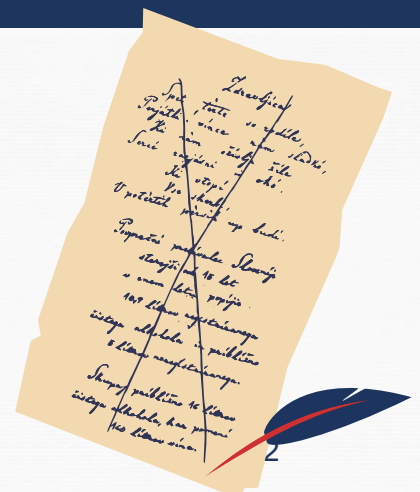 Zdravljica
Spet trte so rodile,
Prijatli, vince nam sladkó,
Ki nam oživlja žile
Sercé razjásni in oko,
Ki utopi
Vse skerbí
V potrtih prsih up budi.
Povprečni prebivalec Slovenije
starejši od 15 let
v enem letu popije
10,9 litrov registriranega
čistega alkohola in približno
5 litrov neregistriranega.
Skupaj približno 16 litrov
čistega alkohola, kar pomeni
160 litrov vina.
2